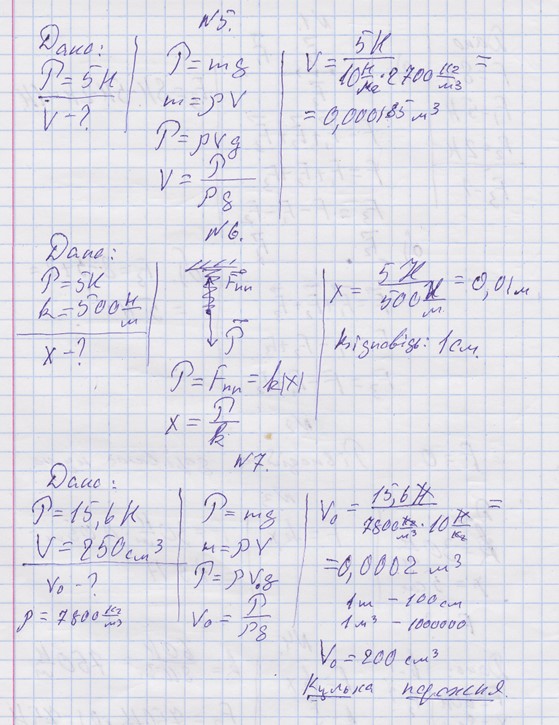 №5.
Дано:
P = 5Н
V - ?
P = mg
m = ρV
P = ρVg
V = P/ρg
V = 5Н / 10 Н/кг · 2700 кг/м³ =
= 0,000185 м³
№6.
Дано:
P = 5Н
k = 500 Н/м
x - ?
Fпр
P
P = Fпр = k|x|
x = P/k
x = 5Н / 500 Н/м = 0,01 м
Відповідь: 1 см.
№7.
Дано:
P = 15,6 Н
V = 250 см³
V₀ - ?
ρ = 7800 кг/м³
P = mg
m = ρV
P = ρV₀g
V₀ = P/ρg
V₀ = 15,6 Н / 7800 кг/м³ · 10 Н/кг =
= 0,0002 м³
1м - 100 см
1м³ - 1000000
V₀ = 200 см³
Кулька порожня.